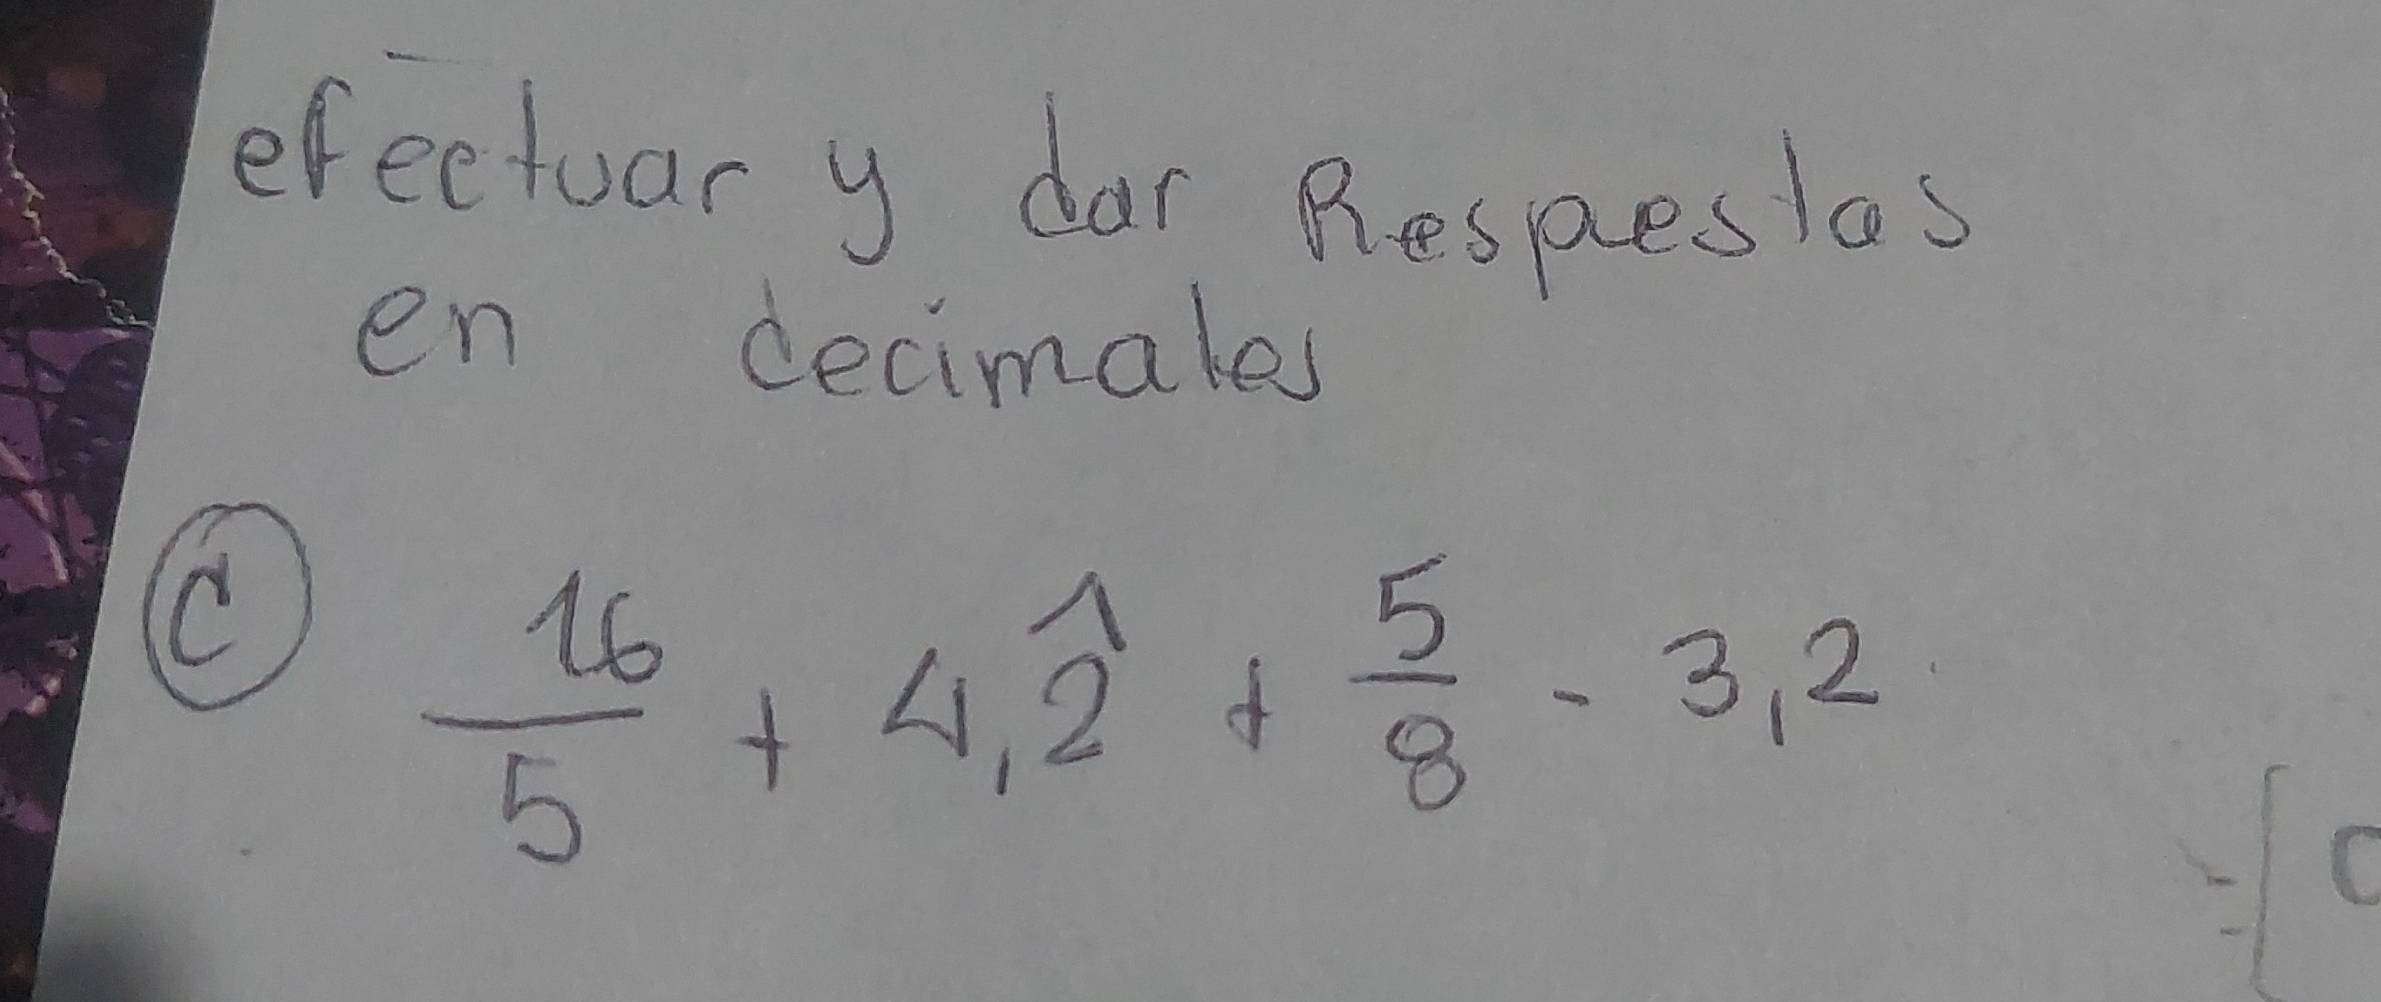 efectuar y dar Respuestas
en decimales
C 16/5 + 4,2̂ + 5/8 - 3,2
=